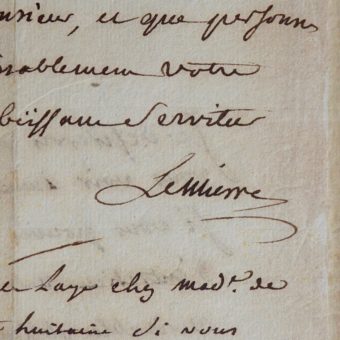 nsieur, et que personne
rablement votre
béissant Serviteur
Lemierre
Laye chez mad.e de
huitaine Si nous